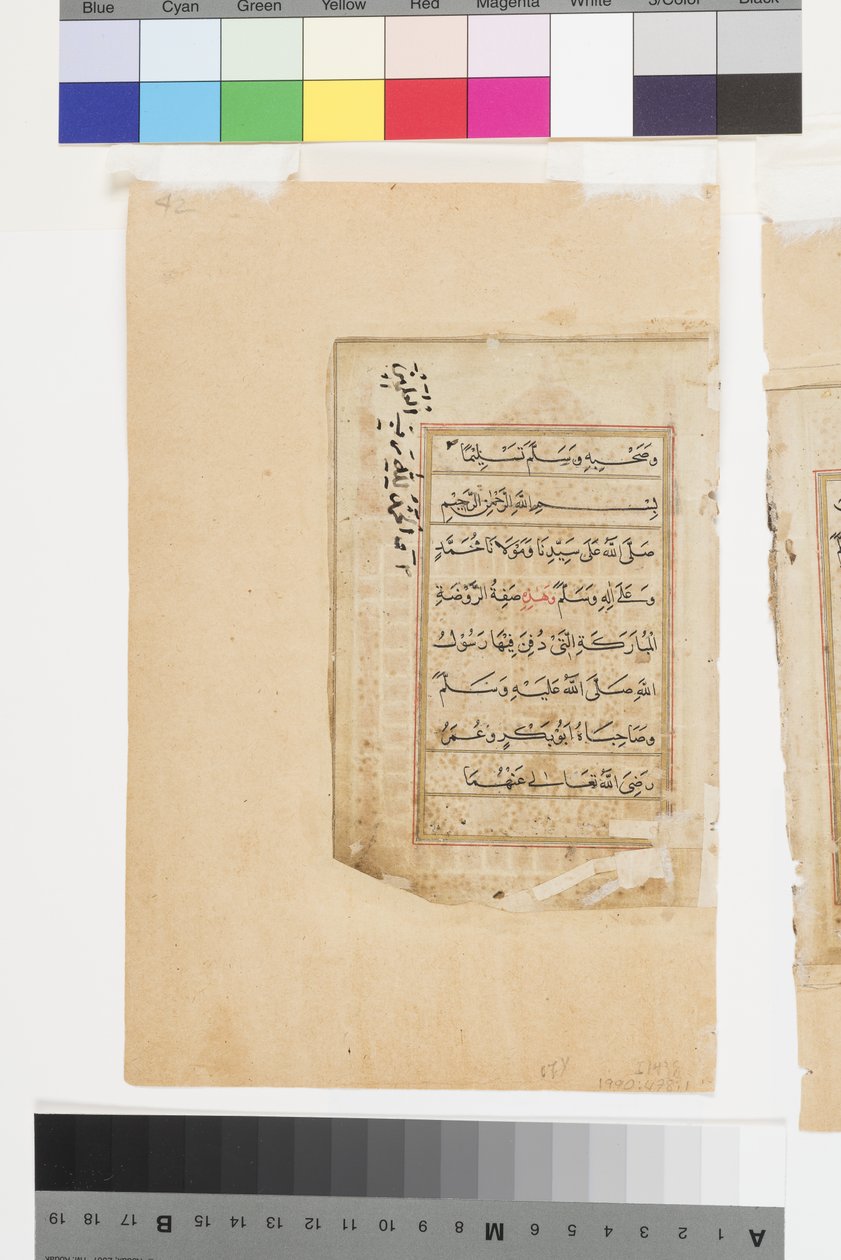 Blue Cyan Green Yellow Red Magenta White 3/Color Black
42
وَصَحْبِهِ وَسَلَّمَ تَسْلِيْمًا
بِسْمِ اللَّهِ الرَّحْمٰنِ الرَّحِيْمِ
صَلَّى اللَّهُ عَلَى سَيِّدِنَا وَمَوْلَانَا مُحَمَّدٍ
وَعَلَى اٰلِهِ وَسَلَّمَ وَهَذِهِ صِفَةُ الرَّوْضَةِ
الْمُبَارَكَةِ الَّتِيْ دُفِنَ فِيْهَا رَسُوْلُ
اللَّهِ صَلَّى اللَّهُ عَلَيْهِ وَسَلَّمَ
وَصَاحِبَاهُ اَبُوْ بَكْرٍ وَعُمَرُ
رَضِيَ اللَّهُ تَعَالٰى عَنْهُمَا
الحمد لله رب العلمين
1990.478.1
19 18 17 B 15 14 13 12 11 10 9 8 M 6 5 4 3 2 1 A